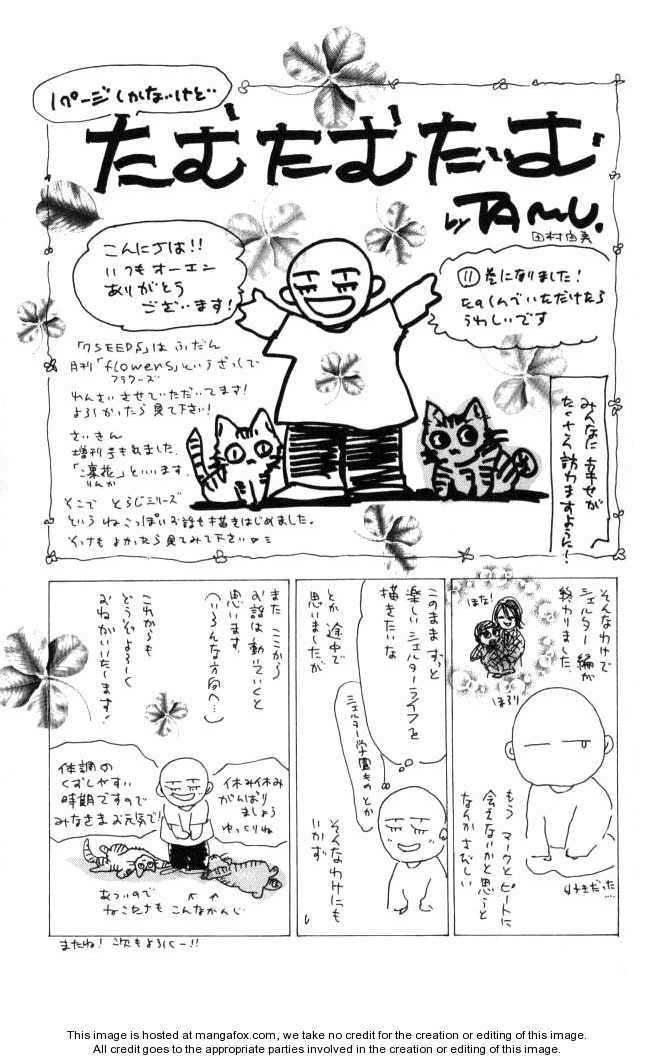 1ページしかないけど…
たむたむたいむ
by TAMU.
田村由美
こんにちは!!
いつもオーエン
ありがとう
ございます!
⑪巻になりました!
たのしんでいただけたら
うれしいです
「7SEEDS」はふだん
月刊「flowers」というざっしで
フラワーズ
れんさいさせていただいてます!
よろしかったら見て下さい!
さいきん
増刊号も出ました。
「凜花」といいます。
りんか
そこで とらじシリーズ
というねこっぽいお話も描きはじめました。
そっちもよかったら見てみて下さい
みんなに幸せが
たくさん訪れますように!
そんなわけで
シェルター編が
終わりました
ほな!
ほろり
もうマークとピートに
会えないかと思うと
なんかさびしい
好きだった…
このままずっと
楽しいシェルターライフを
描きたいな
とか途中で
思いましたが
シェルター学園ものとか
そんなわけにも
いかず
またここから
お話は動いていくと
思います
(いろんな方向へ…)
これからも
どうぞよろしく
おねがいいたします!
体調の
くずしやすい
時期ですので
みなさまお元気で!
休み休み
がんばり
ましょう
ゆっくりね
あついので
ねこたちも こんなかんじ
またね! 次もよろしくー!!
This image is hosted at mangafox.com, we take no credit for the creation or editing of this image.
All credit goes to the appropriate parties involved in the creation or editing of this image.